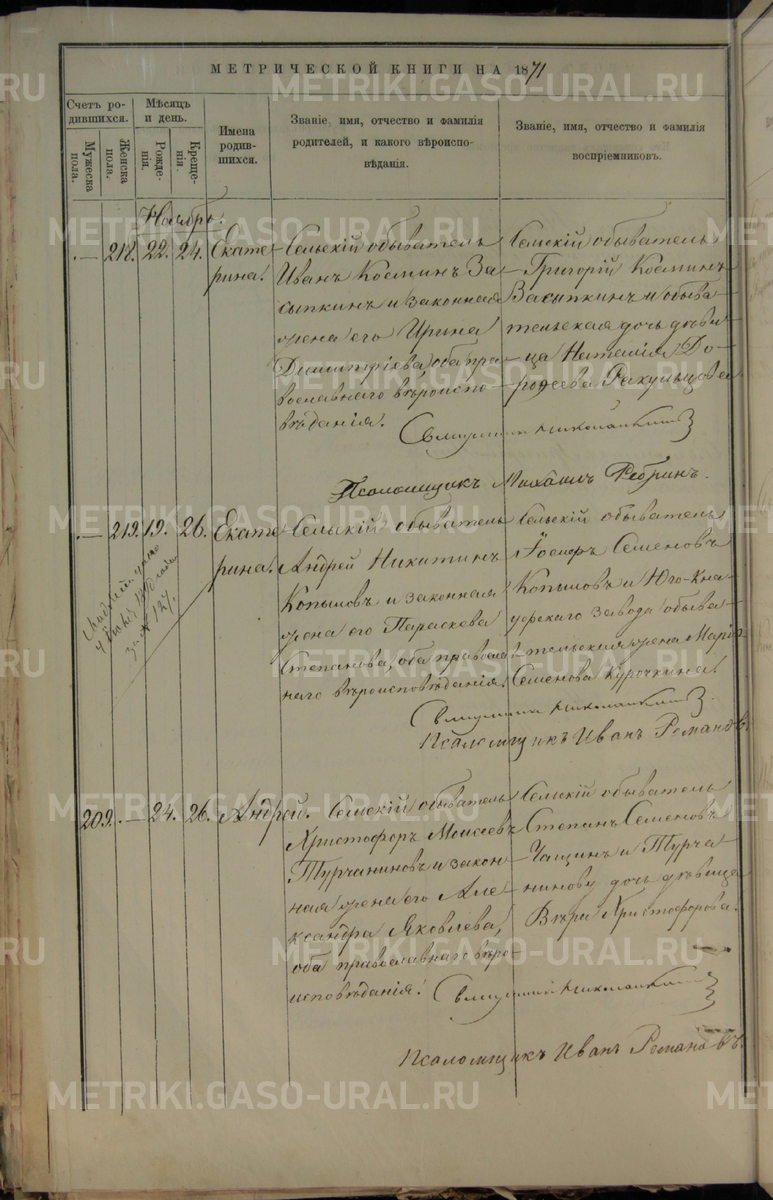 МЕТРИЧЕСКОЙ КНИГИ НА 1871
Счетъ родившихся.
Мѣсяцъ и день.
Имена родившихся.
Званіе, имя, отчество и фамилія родителей, и какого вѣроисповѣданія.
Званіе, имя, отчество и фамилія воспріемниковъ.
Мужеска пола.
Женска пола.
Рожденія.
Крещенія.
Ноябрь.
— 218. 22. 24.
Екате-
рина.
Сельскій обыватель
Иванъ Косминъ За-
сыпкинъ и законная
жена его Ирина
Димитріева, оба пра-
вославнаго вѣроиспо-
вѣданія.
Сельскій обыватель
Григорій Косминъ
Засыпкинъ и обыва-
тельская дочь дѣви-
ца Наталія До-
рофеева
Священникъ
Псаломщикъ Михаилъ Ребринъ.
— 219. 19. 26.
Екате-
рина.
Сельскій обыватель
Андрей Никитинъ
Копыловъ и законная
жена его Параскева
Степанова, оба православ-
наго вѣроисповѣданія.
Сельскій обыватель
Іосифъ Семеновъ
Копыловъ и Юго-Кна-
уфскаго завода обыва-
тельская жена Марія
Семенова Курочкина.
Священникъ
Псаломщикъ Иванъ Романовъ.
за № 127.
209. — 24. 26.
Андрей.
Сельскій обыватель
Христофоръ Моисеевъ
Турчаниновъ и закон-
ная жена его Але-
ксандра Яковлева,
оба православнаго вѣро-
исповѣданія.
Сельскій обыватель
Степанъ Семеновъ
Чащинъ и Турча-
нинову дочь дѣвица
Вѣра Христофорова.
Священникъ
Псаломщикъ Иванъ Романовъ.
METRIKI.GASO-URAL.RU